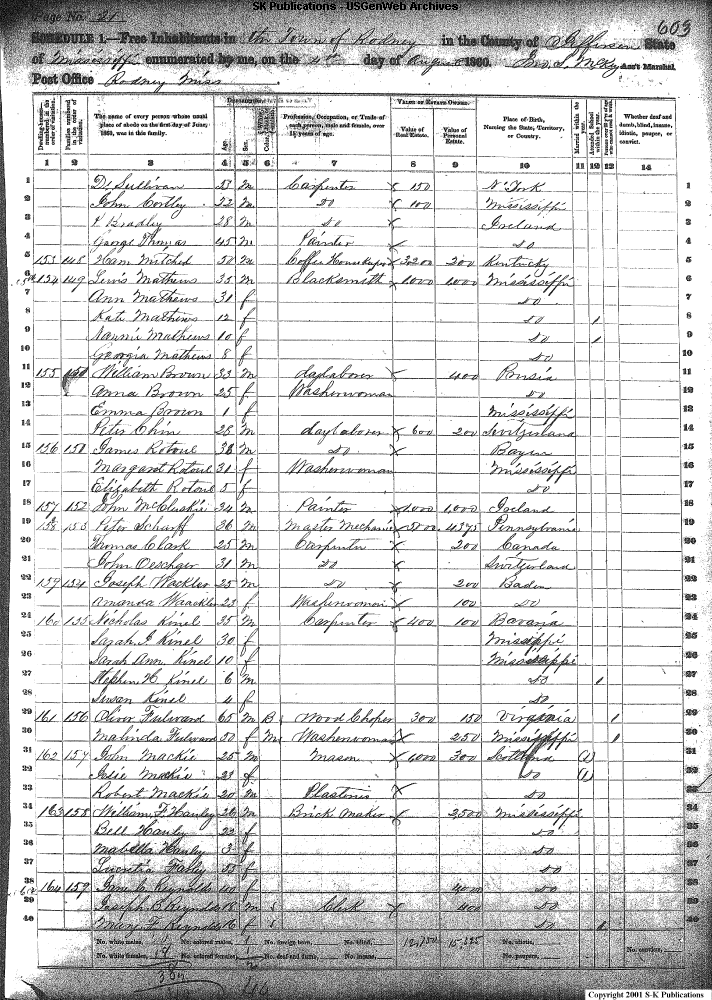 SK Publications - USGenWeb Archives
Page No. 21
603
SCHEDULE 1.—Free Inhabitants in the Town of Rodney in the County of Jefferson State
of Mississippi enumerated by me, on the 4th day of August 1860. Ass't Marshal.
Post Office Rodney Miss
Dwelling-houses numbered in the order of visitation.
The name of every person whose usual place of abode on the first day of June, 1860, was in this family.
Description
Age.
Sex.
Profession, Occupation, or Trade of each person, male and female, over 15 years of age.
Value of Estate Owned.
Value of Real Estate.
Value of Personal Estate.
Place of Birth, Naming the State, Territory, or Country.
Married within the year.
Attended School within the year.
Whether deaf and dumb, blind, insane, idiotic, pauper, or convict.
1 2 3 4 5 6 7 8 9 10 11 12 13 14
1 Sullivan 23 m Carpenter 150 N York 1
2 John 22 m do 100 Mississippi 2
3 Bradley 28 m do Ireland 3
4 George Thomas 45 m Painter do 4
5 153 148 50 m 3200 200 Kentucky 5
6 154 149 Lewis Mathews 35 m Blacksmith 1000 1000 Mississippi 6
7 Ann Mathews 31 f do 7
8 Kate Mathews 12 f do 1 8
9 Nannie Mathews 10 f do 1 9
10 Georgia Mathews 8 f do 10
11 155 150 William Brown 33 m daylaborer 400 Prusia 11
12 Anna Brown 25 f Washerwoman do 12
13 Emma Brown 1 f Mississippi 13
14 Peter Chin 28 m daylaborer 600 200 Switzerland 14
15 156 151 James Rotoul 38 m do Bayen 15
16 Margaret Rotoul 31 f Washerwoman Mississippi 16
17 Elizabeth Rotoul 5 f do 17
18 157 152 John McCluskie 24 m Painter 1000 1000 Ireland 18
19 158 153 Peter Scharff 36 m Master Mechanic 4375 Pennsylvania 19
20 Thomas Clark 25 m Carpenter 200 Canada 20
21 John Oeschger 31 m do Switzerland 21
22 159 154 Joseph Wackler 25 m do 200 Baden 22
23 Amanda Waackler 23 f Washerwoman 100 do 23
24 160 155 Nicholas Kinel 35 m Carpenter 400 100 Bavaria 24
25 Sarah J Kinel 30 f Mississippi 25
26 Sarah Ann Kinel 10 f Mississippi 26
27 Stephen H Kinel 6 m do 1 27
28 Susan Kinel 4 f do 28
29 161 156 Oliver Fulward 65 m B Wood Choper 300 150 Virginia 1 29
30 Malinda Fulward 50 f M Washerwoman 250 Mississippi 1 30
31 162 157 John Mackie 25 m Mason 1000 300 Scotland (1) 31
32 Mackie 21 f do (1) 32
33 Robert Mackie 20 m do 33
34 163 158 William F Hanley 26 m Brick Maker 2500 Mississippi 34
35 Bell Hanley 22 f do 35
36 Mabella Hanley 3 f do 36
37 Lucretia 55 f do 37
38 164 159 Jane C Reynolds 40 f 4000 do 38
39 Joseph C Reynolds 18 m Clerk 400 do 39
40 Mary F Reynolds 16 f do 1 40
No. white males, No. colored males, 1 No. foreign born, No. blind, No. idiotic,
No. white females, No. colored females, No. deaf and dumb, No. insane, No. paupers, No. convicts,
Copyright 2001 S-K Publications